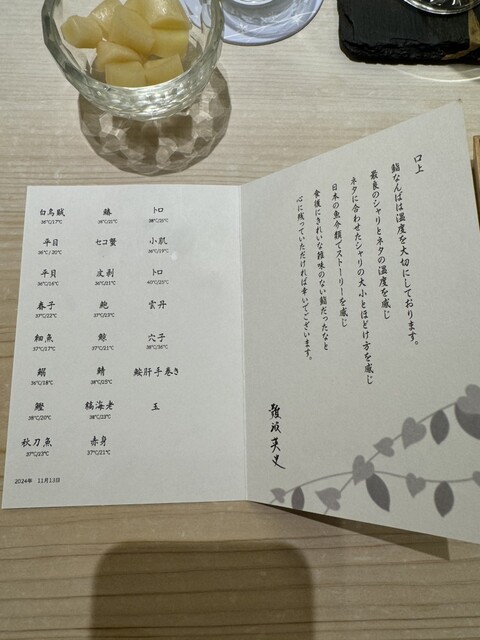 白烏賊
36℃/17℃
平目
36℃/20℃
平貝
36℃/16℃
春子
37℃/22℃
細魚
37℃/17℃
鰯
36℃/18℃
鰹
38℃/20℃
秋刀魚
37℃/23℃
鰆
36℃/21℃
セコ蟹
皮剥
36℃/21℃
鮑
37℃/23℃
鯨
37℃/21℃
鯖
38℃/25℃
縞海老
38℃/23℃
赤身
37℃/21℃
トロ
38℃/25℃
小肌
36℃/19℃
トロ
40℃/25℃
雲丹
穴子
鮟肝手巻き
玉
2024年 11月13日
口上
鮨なんばは温度を大切にしております。
最良のシャリとネタの温度を感じ
ネタに合わせたシャリの大小とほどけ方を感じ
日本の魚介類でストーリーを感じ
食後にきれいな雑味のない鮨だったなと
心に残っていただければ幸いでございます。
難波英史